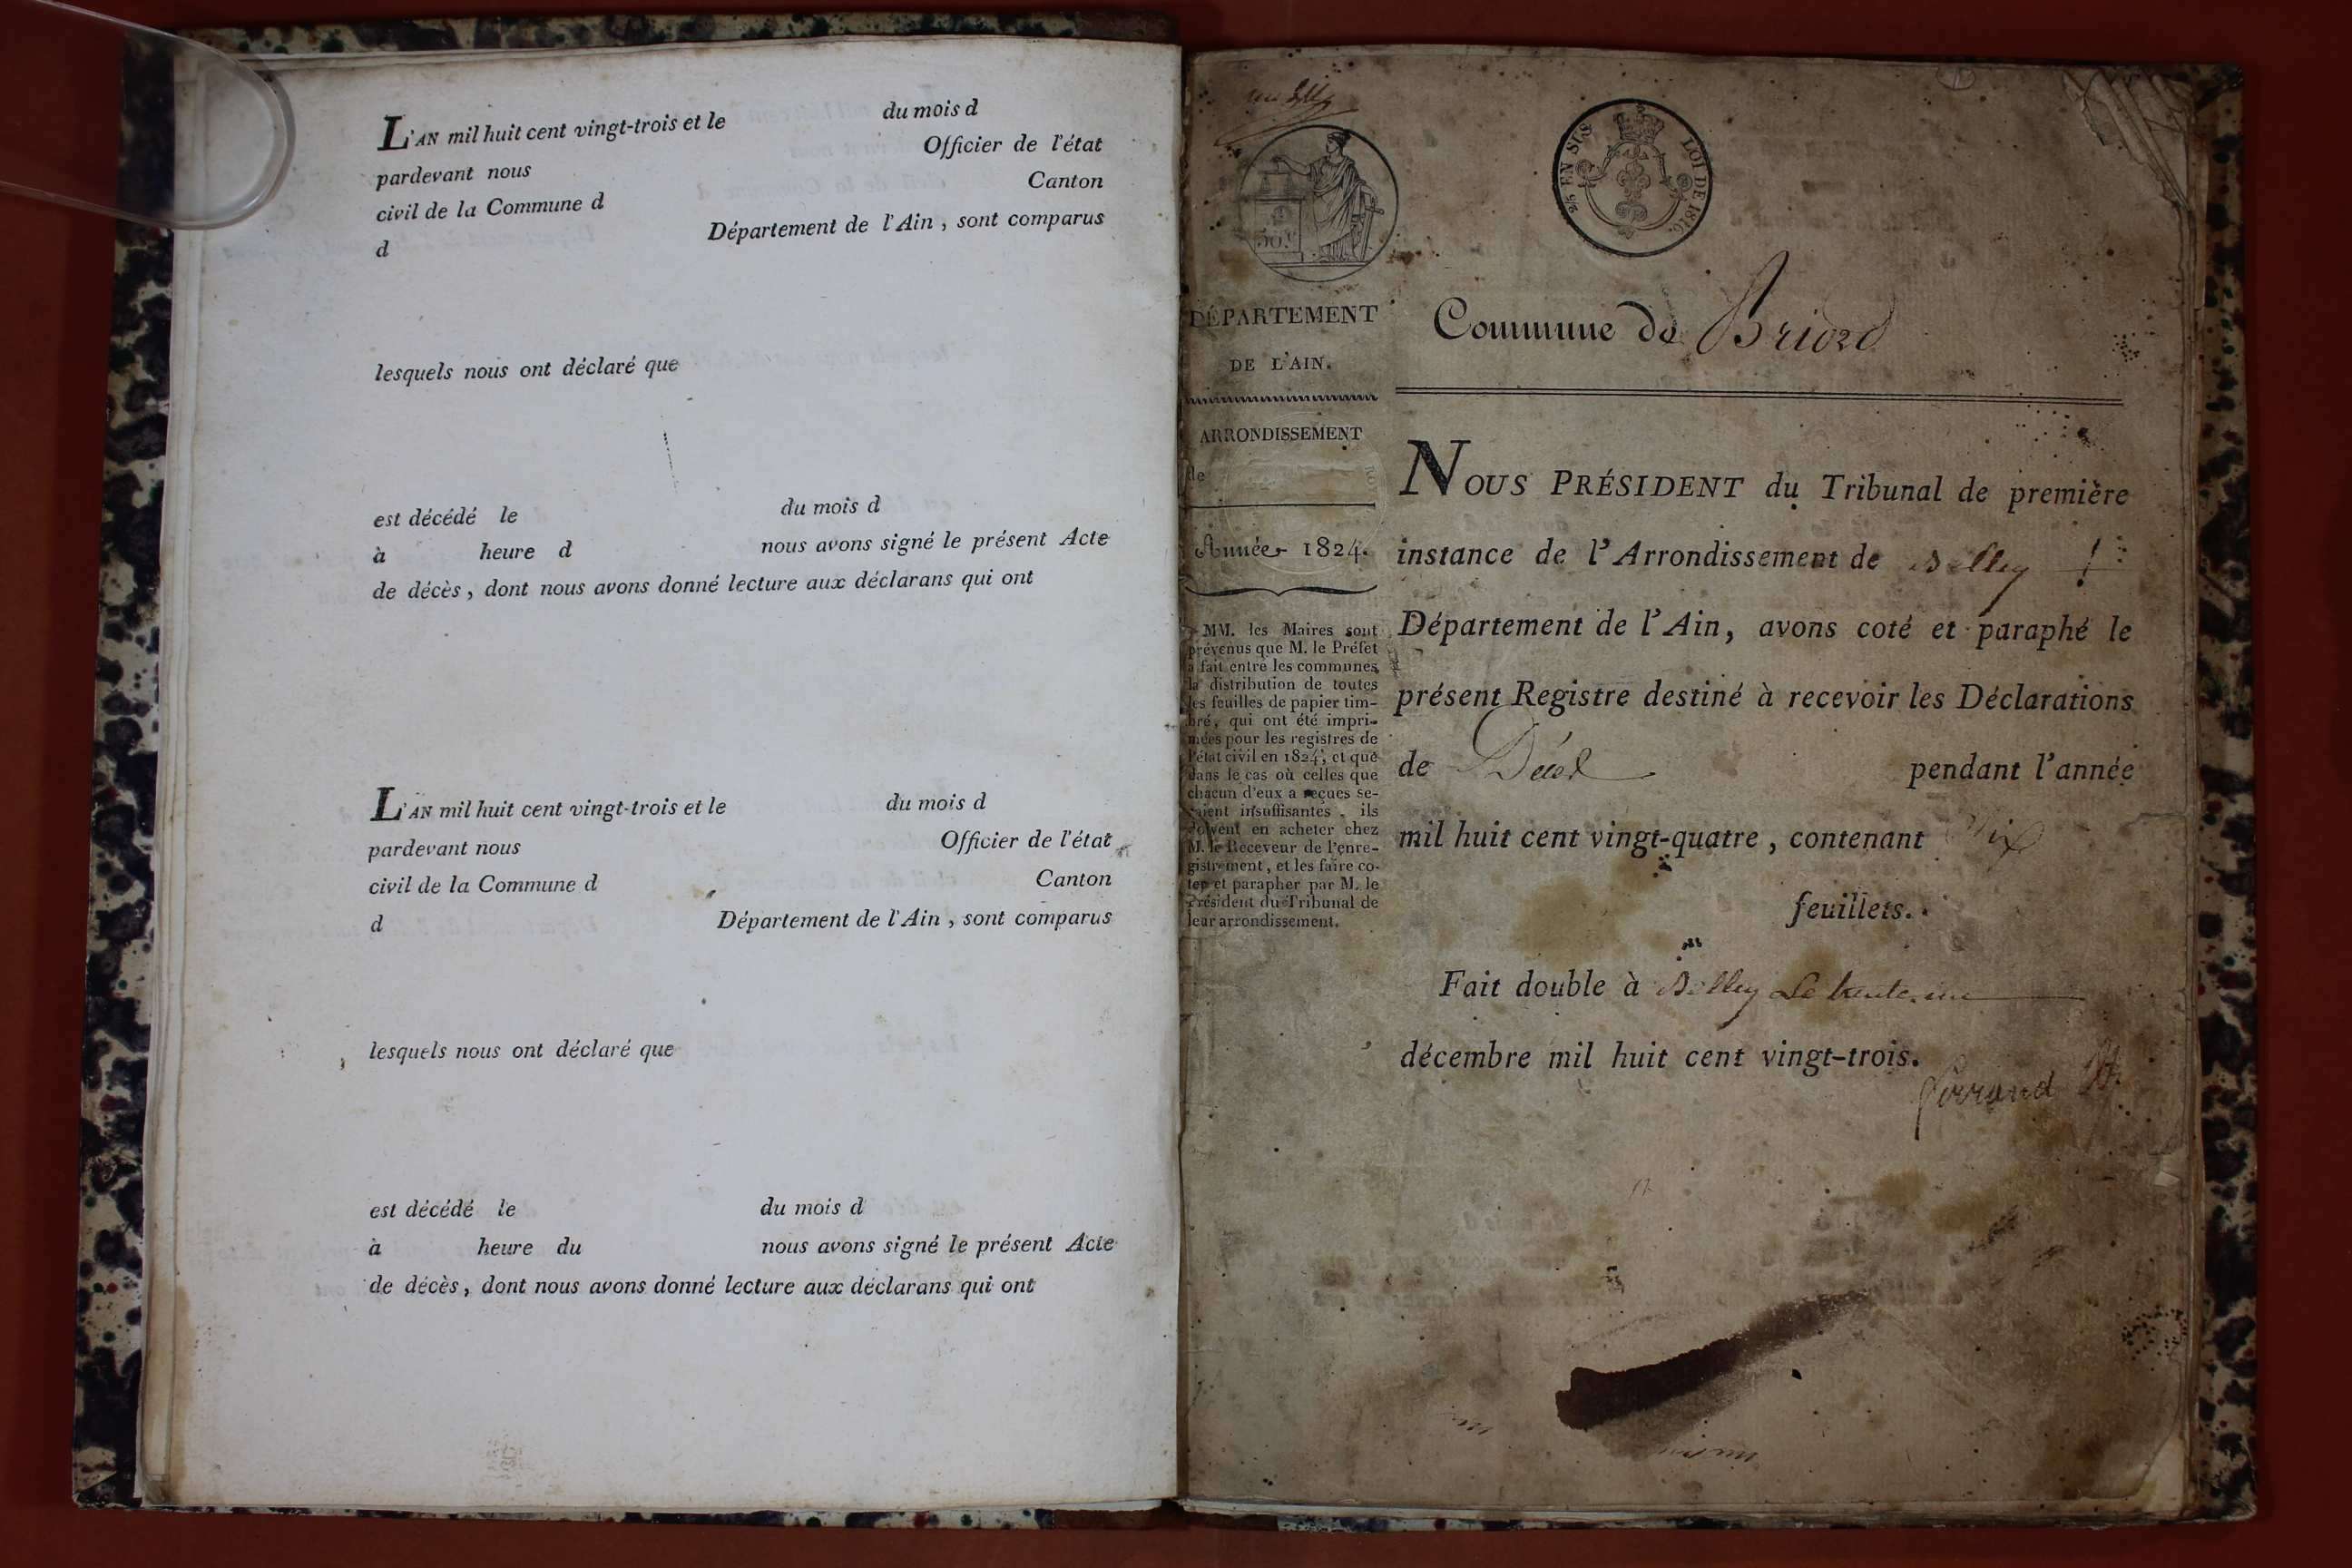 L'AN mil huit cent vingt-trois et le du mois d
pardevant nous Officier de l'état
civil de la Commune d Canton
d Département de l'Ain, sont comparus
lesquels nous ont déclaré que
est décédé le du mois d
à heure d nous avons signé le présent Acte
de décès, dont nous avons donné lecture aux déclarans qui ont
L'AN mil huit cent vingt-trois et le du mois d
pardevant nous Officier de l'état
civil de la Commune d Canton
d Département de l'Ain, sont comparus
lesquels nous ont déclaré que
est décédé le du mois d
à heure du nous avons signé le présent Acte
de décès, dont nous avons donné lecture aux déclarans qui ont
50.c
2/5 EN SUS
LOI DE 1816.
DÉPARTEMENT
DE L'AIN.
ARRONDISSEMENT
de
Année 1824.
MM. les Maires sont
prévenus que M. le Préfet
a fait entre les communes
la distribution de toutes
les feuilles de papier tim-
bré, qui ont été impri-
mées pour les registres de
l'état civil en 1824; et que
dans le cas où celles que
chacun d'eux a reçues se-
raient insuffisantes, ils
doivent en acheter chez
M. le Receveur de l'enre-
gistrement, et les faire co-
ter et parapher par M. le
Président du Tribunal de
leur arrondissement.
Commune de Briord
NOUS PRÉSIDENT du Tribunal de première
instance de l'Arrondissement de Belley
Département de l'Ain, avons coté et paraphé le
présent Registre destiné à recevoir les Déclarations
de Décès pendant l'année
mil huit cent vingt-quatre, contenant
feuillets.
Fait double à Belley Le trente-un
décembre mil huit cent vingt-trois.